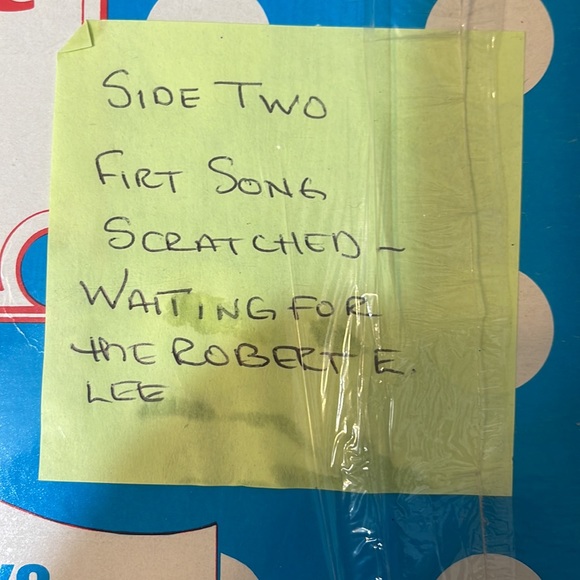 SIDE TWO
FIRT SONG
SCRATCHED -
WAITING FOR
THE ROBERT E.
LEE